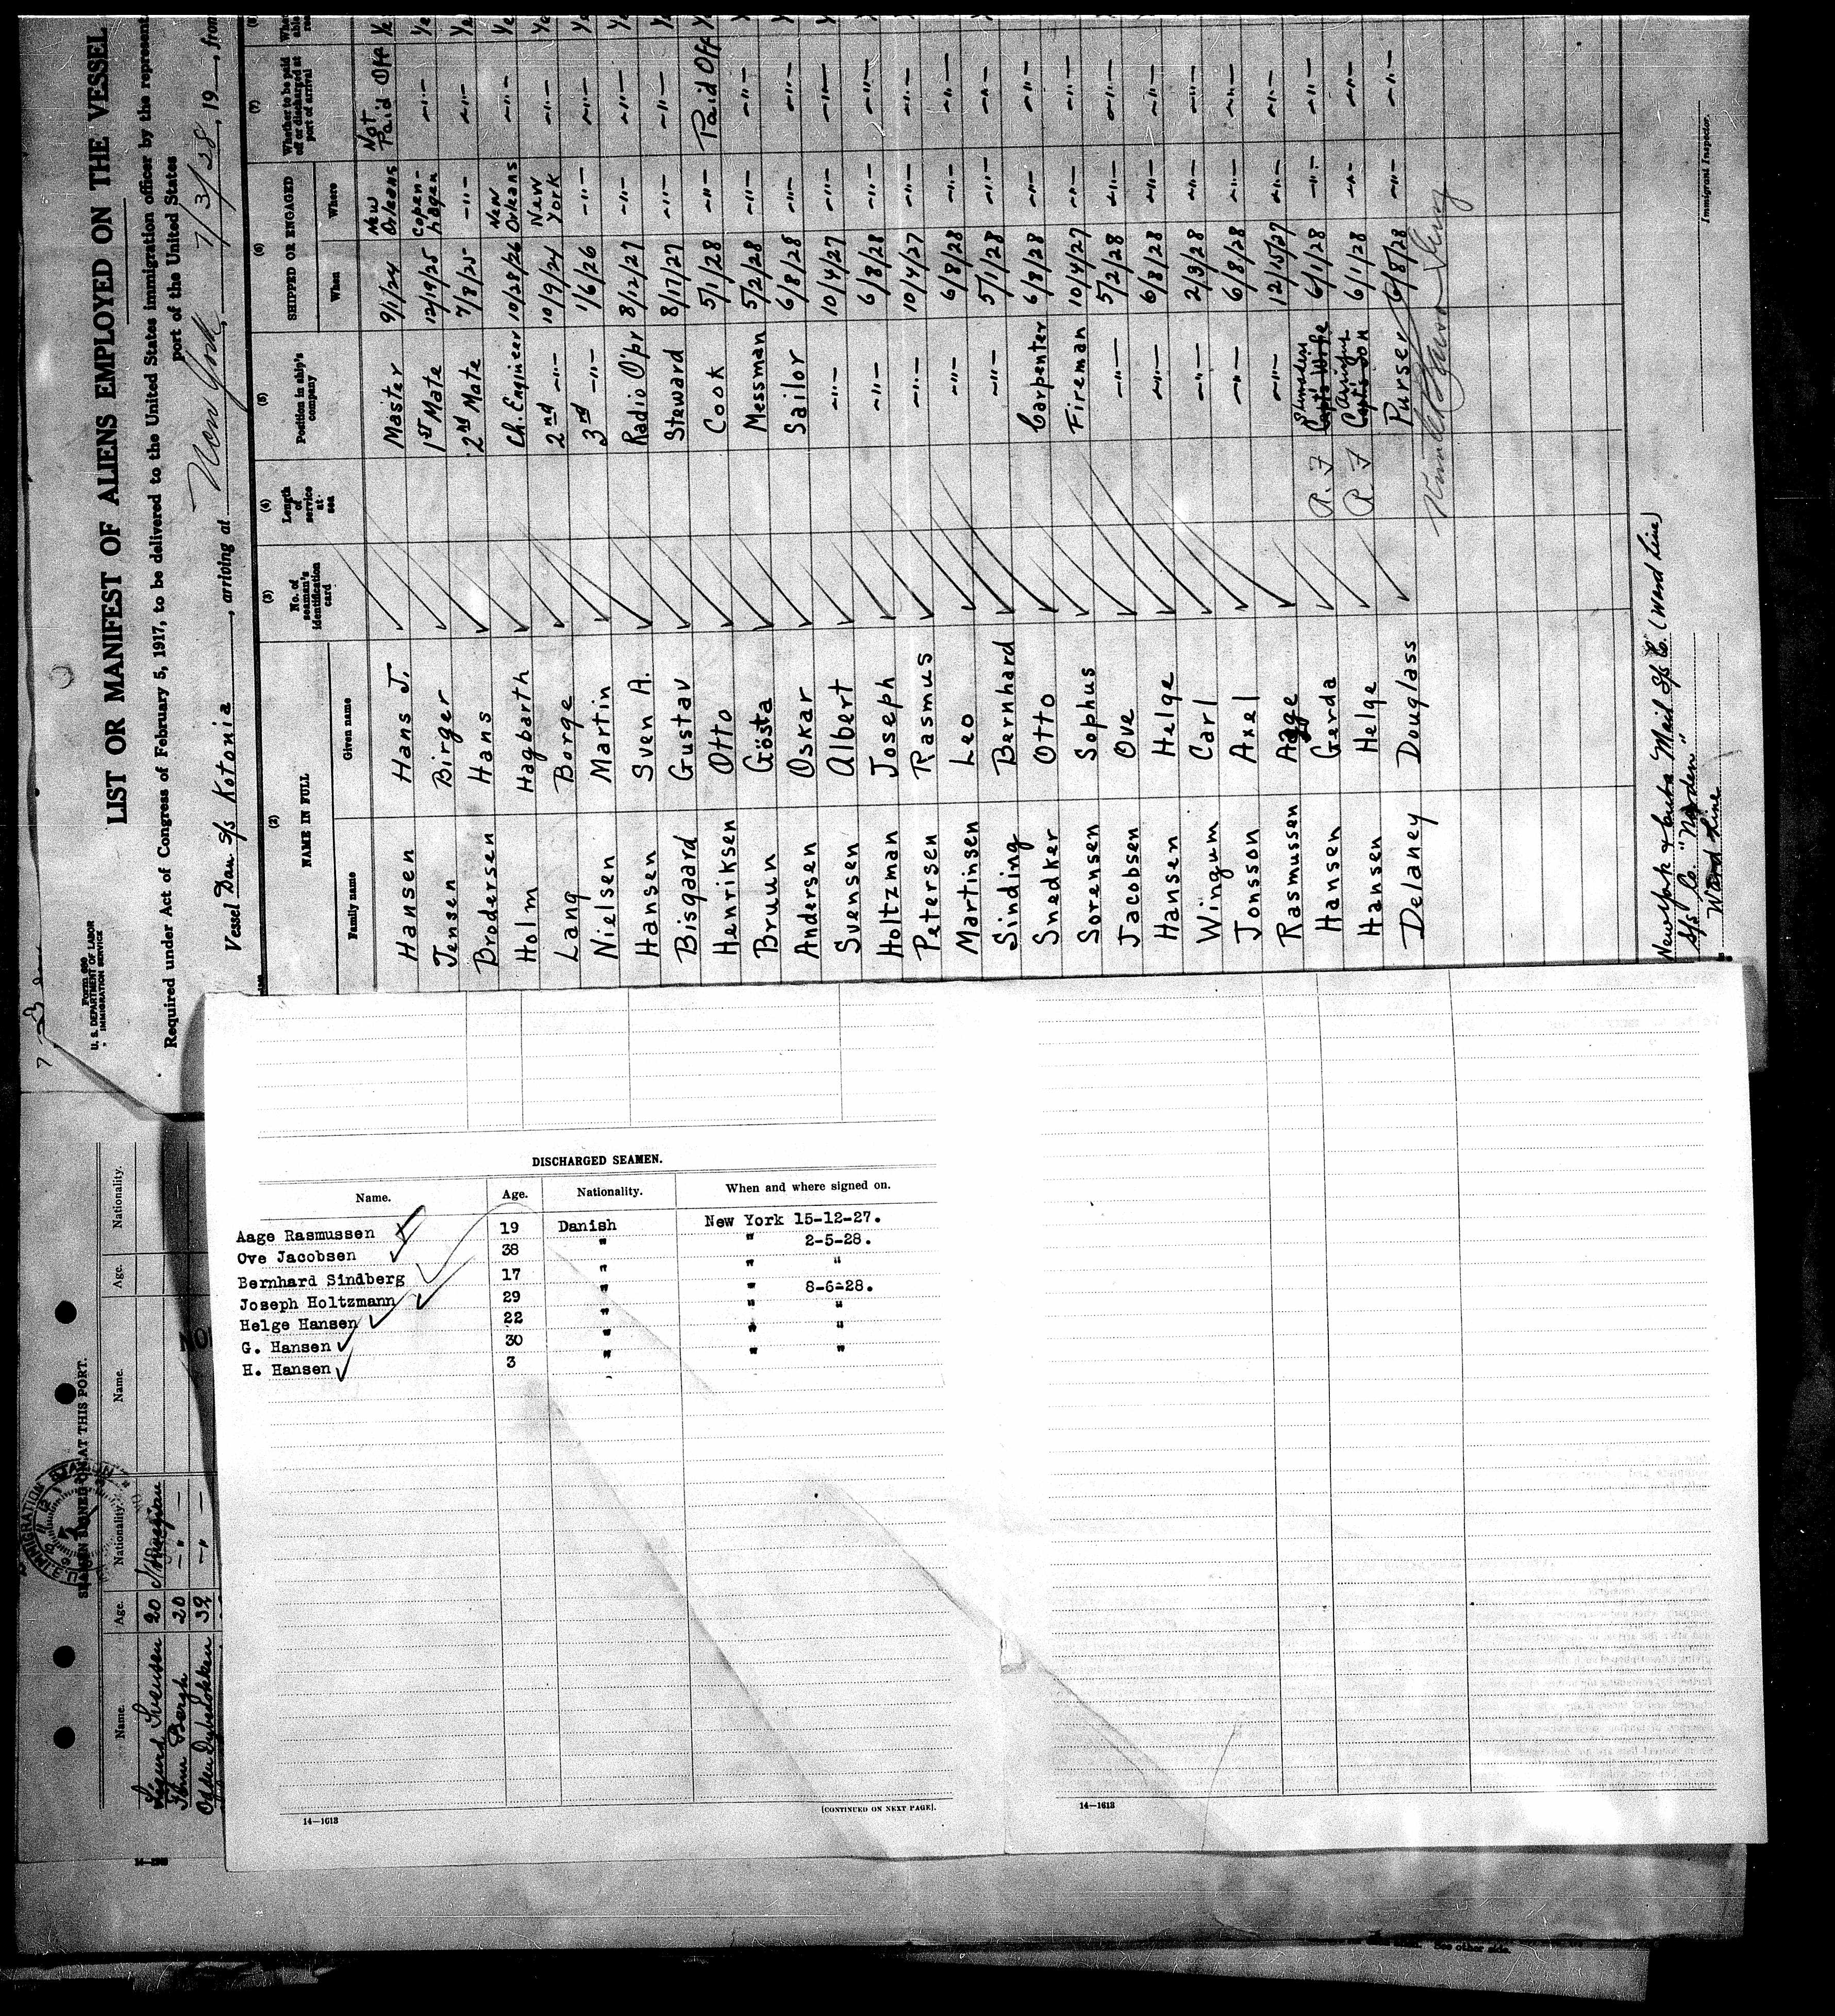 Form 680
U. S. DEPARTMENT OF LABOR
IMMIGRATION SERVICE
LIST OR MANIFEST OF ALIENS EMPLOYED ON THE VESSEL
Required under Act of Congress of February 5, 1917, to be delivered to the United States immigration officer by the represent
port of the United States
Vessel Dan. S/s Kotonia, arriving at New York, 7/3/28, 19, from
(2) (3) (4) (5) (6) (7)
NAME IN FULL No. of seaman's identification card Length of service at sea Position in ship's company SHIPPED OR ENGAGED Whether to be paid off or discharged at port of arrival
Family name Given name When Where
Hansen Hans J. Master 9/1/24 New Orleans Not Paid Off Ye
Jensen Birger 1st Mate 12/19/25 Copenhagen -"- Ye
Brodersen Hans 2nd Mate 7/8/25 -"- -"- Ye
Holm Hagbarth Ch. Engineer 10/28/26 New Orleans -"- Ye
Lang Borge 2nd -"- 10/9/24 New York -"- Ye
Nielsen Martin 3rd -"- 1/6/26 -"- -"- Ye
Hansen Sven A. Radio O'pr 8/12/27 -"- -"- Ye
Bisgaard Gustav Steward 8/17/27 -"- -"- Ye
Henriksen Otto Cook 5/1/28 -"- Paid Off
Bruun Gösta Messman 5/2/28 -"- -"-
Andersen Oskar Sailor 6/8/28 -"- -"-
Svensen Albert -"- 10/4/27 -"- -"-
Holtzman Joseph -"- 6/8/28 -"- -"-
Petersen Rasmus -"- 10/4/27 -"- -"-
Martinsen Leo -"- 6/8/28 -"- -"-
Sinding Bernhard -"- 5/1/28 -"- -"-
Snedker Otto Carpenter 6/8/28 -"- -"-
Sorensen Sophus Fireman 10/4/27 -"- -"-
Jacobsen Ove -"- 5/2/28 -"- -"-
Hansen Helge -"- 6/8/28 -"- -"-
Wingum Carl -"- 2/3/28 -"- -"-
Jonsson Axel -"- 6/8/28 -"- -"-
Rasmussen Aage -"- 12/15/27 -"- -"-
Hansen Gerda R. F Capt's Wife 6/1/28 -"- -"-
Hansen Helge R. F Capt's Son 6/1/28 -"- -"-
Delaney Douglass Purser 6/8/28 -"- -"-
New York & Cuba Mail S/s Co. (Ward Line)
S/s Co. "Norden"
Ward Line
Immigrant Inspector.
SEAMEN SIGNED ON AT THIS PORT.
Name. Age. Nationality. Name. Age. Nationality.
Sigurd Svensen 20 Norwegian
Bergh 20 -"-
32 -"-
DISCHARGED SEAMEN.
Name. Age. Nationality. When and where signed on.
Aage Rasmussen 19 Danish New York 15-12-27.
Ove Jacobsen 38 " " 2-5-28.
Bernhard Sindberg 17 " " "
Joseph Holtzmann 29 " " 8-6-28.
Helge Hansen 22 " " "
G. Hansen 30 " " "
H. Hansen 3 " " "
14—1613
[CONTINUED ON NEXT PAGE].
14—1613
See other side.